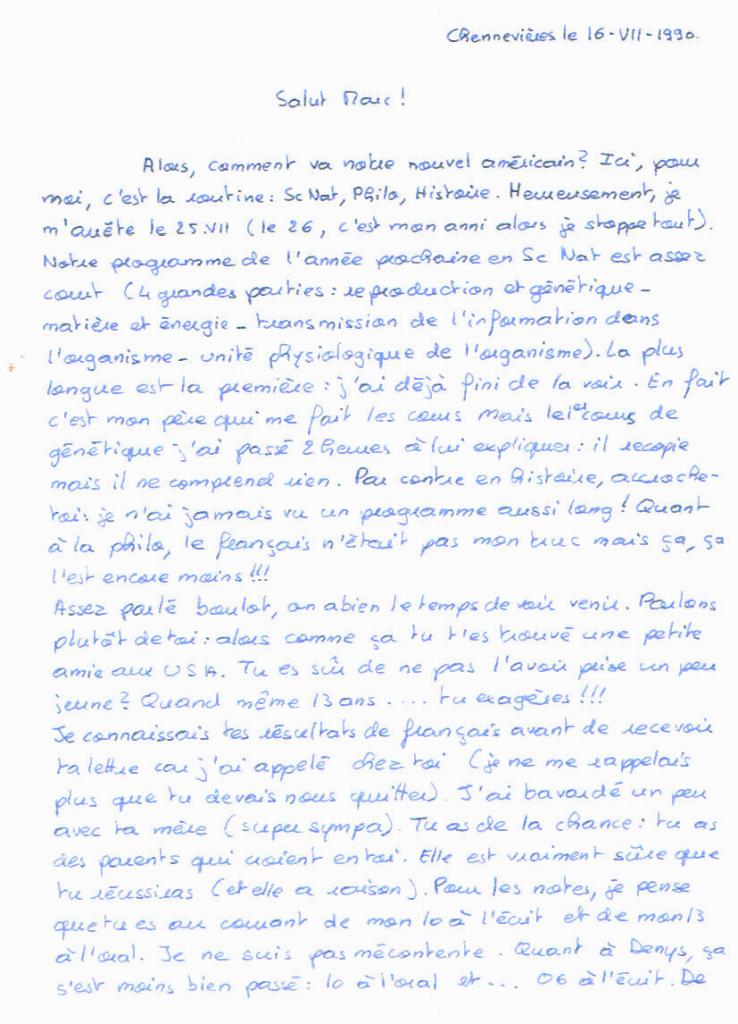 Chennevières le 16-VII-1990.
Salut Marc!
Alors, comment va notre nouvel américain? Ici, pour
moi, c'est la routine: Sc Nat, Philo, Histoire. Heureusement, je
m'arrête le 25.VII (le 26, c'est mon anni alors je stoppe tout).
Notre programme de l'année prochaine en Sc Nat est assez
court (4 grandes parties: reproduction et génétique -
matière et énergie - transmission de l'information dans
l'organisme - unité physiologique de l'organisme). La plus
longue est la première: j'ai déjà fini de la voir. En fait
c'est mon père qui me fait les cours mais le 1er cours de
génétique j'ai passé 2 heures à lui expliquer: il recopie
mais il ne comprend rien. Par contre en histoire, accroche-
toi: je n'ai jamais vu un programme aussi long! Quant
à la philo, le français n'était pas mon truc mais ça, ça
l'est encore moins!!!
Assez parlé boulot, on a bien le temps de voir venir. Parlons
plutôt de toi: alors comme ça tu t'es trouvé une petite
amie aux USA. Tu es sûr de ne pas l'avoir prise un peu
jeune? Quand même 13 ans .... tu exagères!!!
Je connaissais tes résultats de français avant de recevoir
ta lettre car j'ai appelé chez toi (je ne me rappelais
plus que tu devais nous quitter). J'ai bavardé un peu
avec ta mère (super sympa). Tu as de la chance: tu as
des parents qui croient en toi. Elle est vraiment sûre que
tu réussiras (et elle a raison). Pour les notes, je pense
que tu es au courant de mon 10 à l'écrit et de mon 13
à l'oral. Je ne suis pas mécontente. Quant à Denys, ça
s'est moins bien passé: 10 à l'oral et ... 06 à l'écrit. De